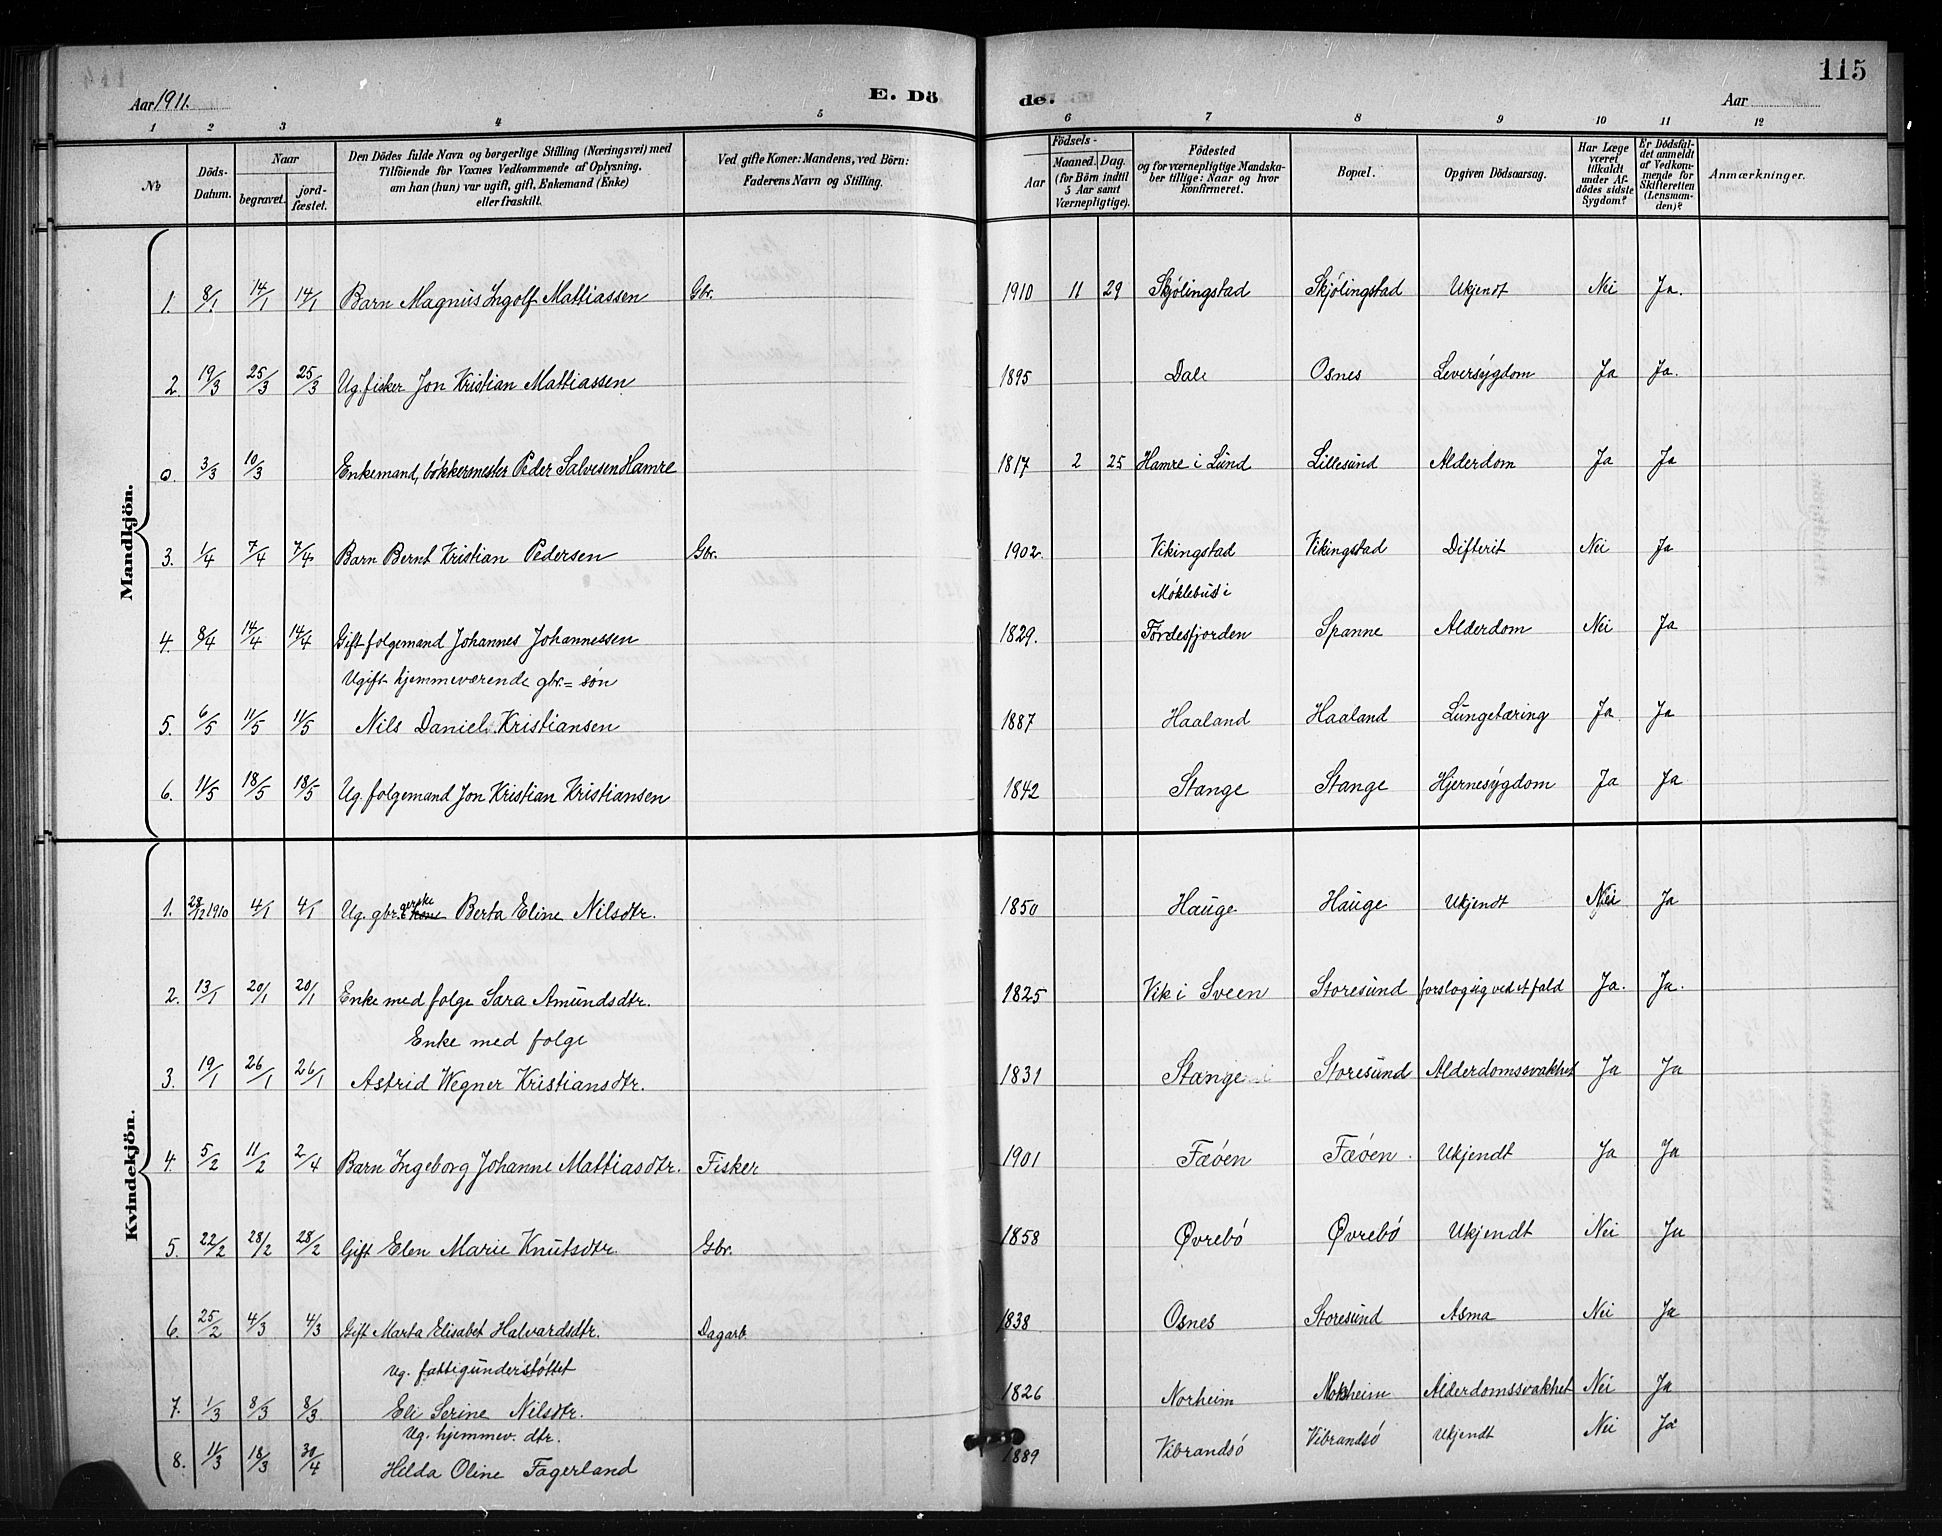 115
Aar 1911. E. Dö de. Aar
1 2 3 4 5 6 7 8 9 10 11 12
№ Döds-Datum. Naar begravet. jord-fæstet. Den Dödes fulde Navn og borgerlige Stilling (Næringsvei) med Tilföiende for Voxnes Vedkommende af Oplysning. om han (hun) var ugift, gift, Enkemand (Enke) eller fraskilt. Ved gifte Koner: Mandens, ved Börn: Faderens Navn og Stilling. Födsels- Aar Maaned. Dag. (for Börn indtil 5 Aar samt Værnepligtige). Födested og for værnepligtige Mandskaber tillige: Naar og hvor konfirmeret. Bopæl. Opgiven Dödsaarsag. Har Læge været tilkaldt under Afdödes sidste Sygdom? Er Dödsfaldet anmeldt af Vedkommende for Skifteretten (Lensmanden)? Anmærkninger.
Mandkjön.
1. 8/1 14/1 14/1 Barn Magnus Ingolf Mattiassen Gbr. 1910 11 29 Skjölingstad Skjölingstad Ukjendt Nei Ja.
2. 19/3 25/3 25/3 Ug. fisker Jon Kristian Mattiassen 1895 Dale Osnes Leversygdom Ja Ja.
0. 3/3 10/3 Enkemand, bökkermester Peder Salvesen Hamre 1817 2 25 Hamre i Lund Lillesund Alderdom Ja Ja
3. 1/4 7/4 7/4 Barn Bernt Kristian Pedersen Gbr. 1902. Vikingstad Vikingstad Difterit Nei Ja
Möklebust i
4. 8/4 14/4 14/4 Gift folgemand Johannes Johannessen 1829. Førdesfjorden Spanne Alderdom Nei Ja
Ugift hjemmeværende gbr.= sön
5. 6/5 11/5 11/5 Nils Daniel Kristiansen 1887 Haaland Haaland Lungetæring Ja Ja
6. 11/5 18/5 18/5 Ug. folgemand Jon Kristian Kristiansen 1842 Stange Stange Hjernesygdom Ja Ja
Kvindekjön.
1. 28/12 1910 4/1 4/1 Ug. gbr.erske kone Berta Eline Nilsdtr. 1850 Hauge Hauge Ukjendt Nei Ja
2. 13/1 20/1 20/1 Enke med folge Sara Amundsdtr. 1825 Vik i Sveen Storesund forslog sig ved et fald Ja. Ja.
Enke med folge
3. 19/1 26/1 26/1 Astrid Wegner Kristiansdtr. 1831 Stange Storesund Alderdomssvakhet Ja Ja
4. 5/2 11/2 2/4 Barn Ingeborg Johanne Mattiasdtr. Fisker 1901 Fæöen Fæöen Ukjendt Ja Ja
5. 22/2 28/2 28/2 Gift Elen Marie Knutsdtr. Gbr. 1858 Øvrebö Øvrebö Ukjendt Nei Ja
6. 25/2 4/3 4/3 Gift Marta Elisabet Halvardsdtr. Dagarb. 1838 Osnes Storesund Asma Nei Ja
Ug. fattigunderstöttet
7. 1/3 8/3 8/3 Eli Serine Nilsdtr. 1826 Norheim Alderdomssvakhet Nei Ja
Ug. hjemmev. dtr.
8. 11/3 18/3 30/4 Hilda Oline Fagerland 1889 Vibrandsö Vibrandsö Ukjendt Nei Ja